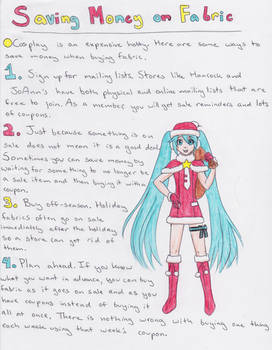 Saving Money on Fabric
Cosplay is an expensive hobby. Here are some ways to
save money when buying fabric.
1. Sign up for mailing lists. Stores like Hancock and
JoAnn's have both physical and online mailing lists that are
free to join. As a member you will get sale reminders and lots
of coupons.
2. Just because something is on
sale does not mean it is a good deal.
Sometimes you can save money by
waiting for something to no longer be
a sale item and then buying it with a
coupon.
3. Buy off-season. Holiday
fabrics often go on sale
immediately after the holiday
so a store can get rid of
them.
4. Plan ahead. If you know
what you want in advance, you can buy
fabric as it goes on sale and as you
have coupons instead of buying it
all at once. There is nothing wrong with buying one thing
each week using that week's coupon.